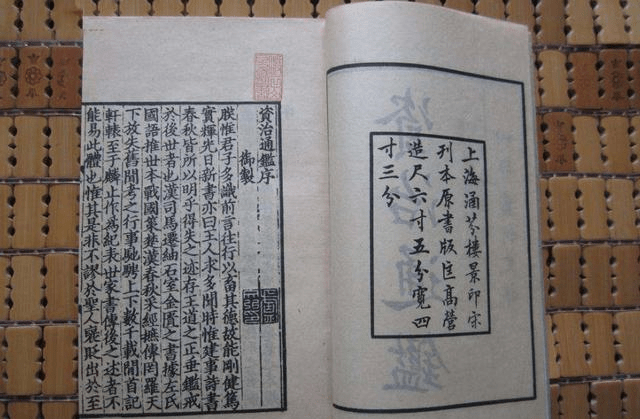 上海涵芬樓景印宋
刊本原書版匡髙營
造尺六寸五分寬四
寸三分
資治通鑑序
御製
朕惟君子多識前言往行以畜其德故能剛健篤
實輝光日新書亦曰王人求多聞時惟建事詩書
春秋皆所以明乎得失之迹存王道之正垂鑑戒
於後世者也漢司馬遷紬石室金匱之書據左氏
國語推世本戰國策楚漢春秋采經摭傳罔羅天
下放失舊聞考之行事馳騁上下數千載間首記
軒轅至于麟止作為紀表世家書傳後之述者不
能易此體也惟其是非不謬於聖人襃貶出於至